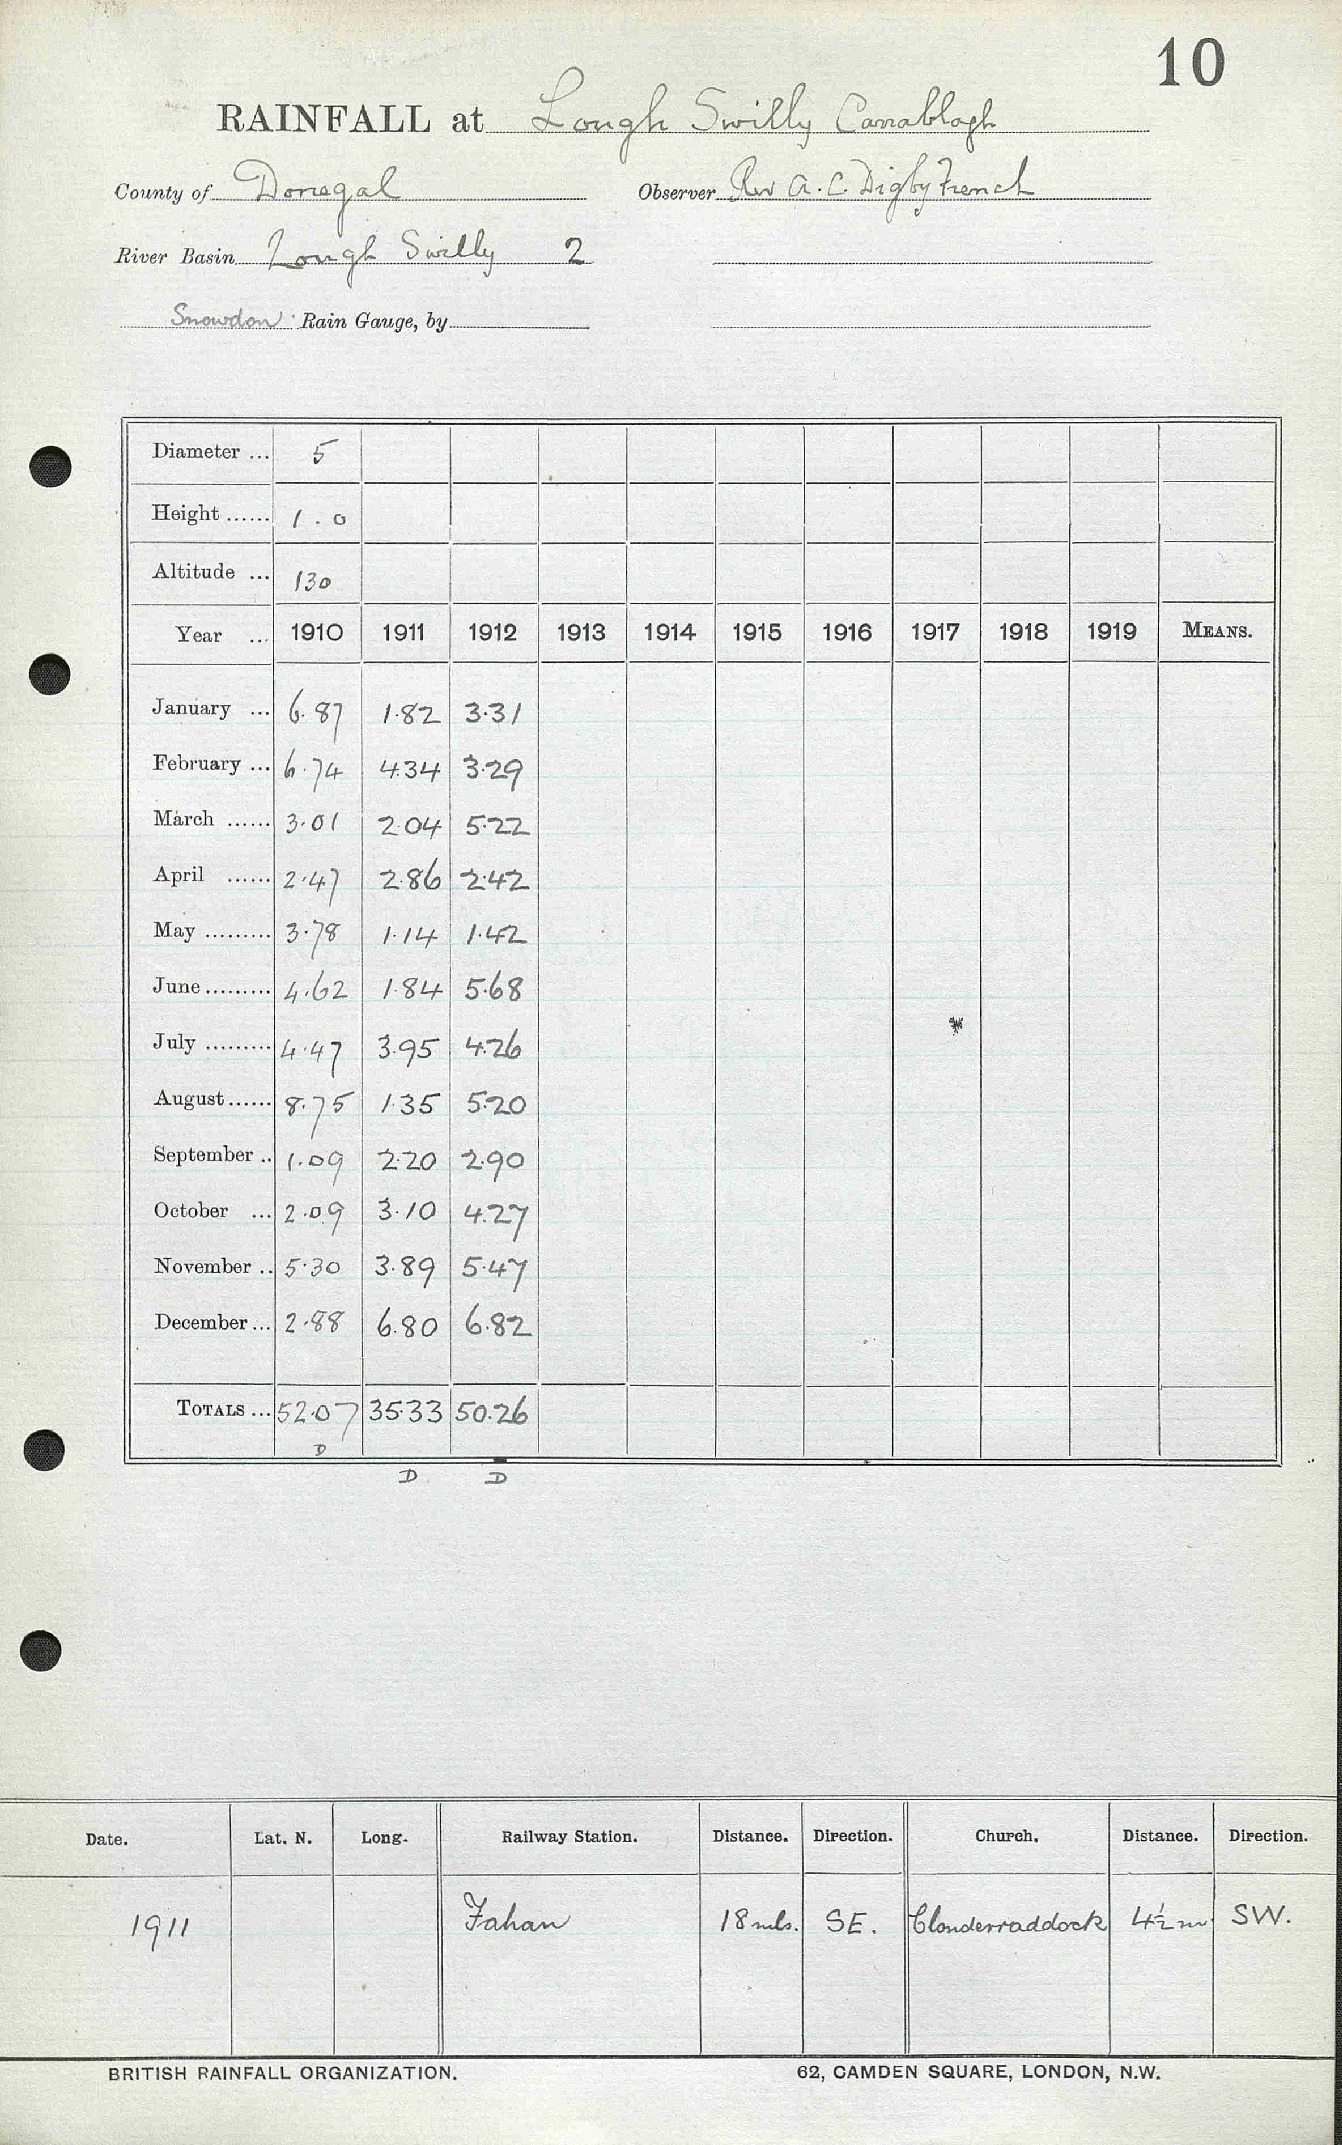 10
RAINFALL at Lough Swilly Carrablagh
County of Donegal Observer Rev A. C. Digby French
River Basin Lough Swilly 2
Snowdon Rain Gauge, by
Diameter ... 5
Height ...... 1.0
Altitude ... 130
Year ... 1910 1911 1912 1913 1914 1915 1916 1917 1918 1919 MEANS.
January ... 6.87 1.82 3.31
February ... 6.74 4.34 3.29
March ...... 3.01 2.04 5.22
April ...... 2.47 2.86 2.42
May ......... 3.78 1.14 1.42
June ......... 4.62 1.84 5.68
July ......... 4.47 3.95 4.26
August ...... 8.75 1.35 5.20
September .. 1.09 2.20 2.90
October ... 2.09 3.10 4.27
November .. 5.30 3.89 5.47
December ... 2.88 6.80 6.82
TOTALS ... 52.07 35.33 50.26
D
D D
Date. Lat. N. Long. Railway Station. Distance. Direction. Church. Distance. Direction.
1911 Fahan 18 mls. SE. Clonderraddock 4½ m SW.
BRITISH RAINFALL ORGANIZATION. 62, CAMDEN SQUARE, LONDON, N.W.